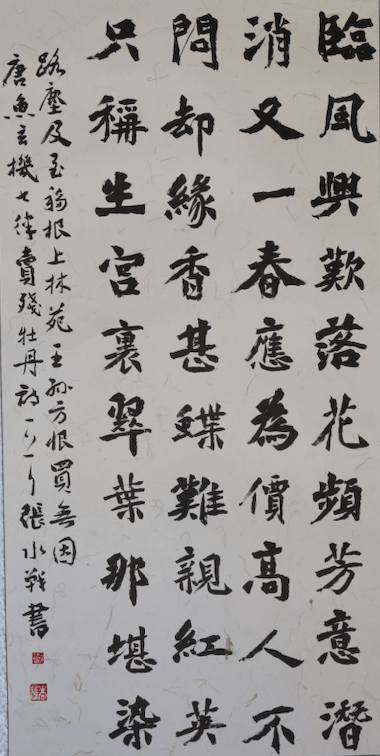 臨風興歎落花頻芳意潛
消又一春應為價高人不
問却緣香甚蝶難親紅英
只稱生宮裏翠葉那堪染
路塵及至移根上林苑王孫方恨買無因
唐魚玄機七律賣殘牡丹詩張水書